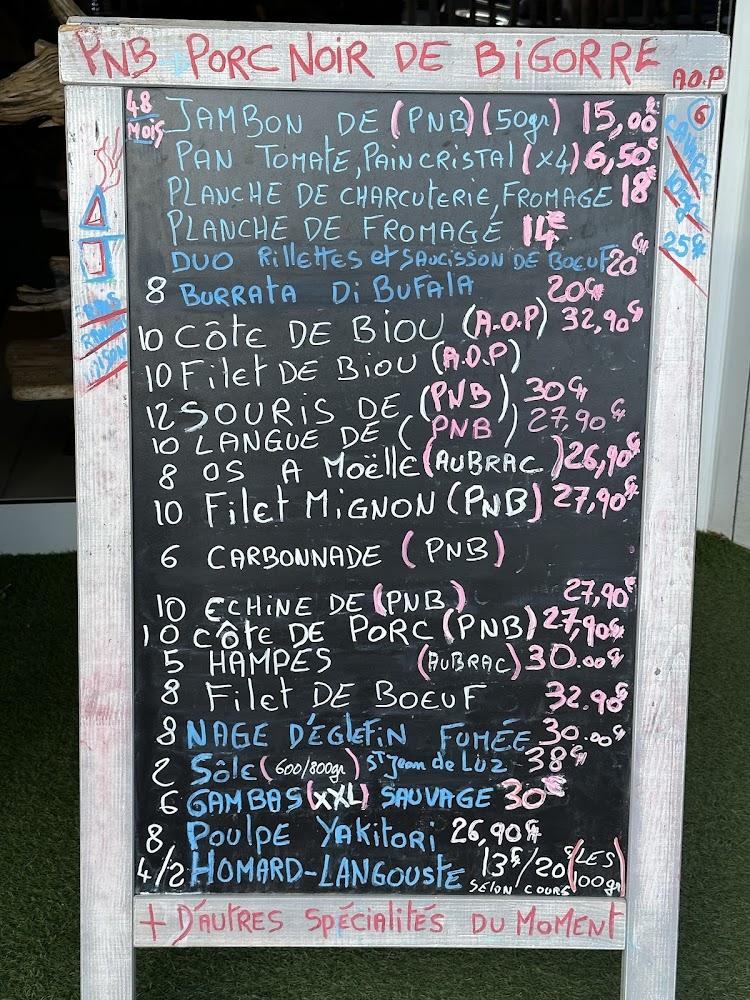 PNB PORC NOIR DE BIGORRE A.O.P
48 MOIS JAMBON DE (PNB) (50gr) 15,00€
PAN TOMATE, PAIN CRISTAL (x4) 6,50€
PLANCHE DE CHARCUTERIE, FROMAGE 18€
PLANCHE DE FROMAGE 14€
DUO RILLETTES et SAUCISSON DE BOEUF 20€
8 BURRATA Di BUFALA 20€
10 CÔTE DE BIOU (A.O.P) 32,90€
10 FILET DE BIOU (A.O.P)
12 SOURIS DE (PNB) 30€
10 LANGUE DE (PNB) 27,90€
8 OS A MOËLLE (AUBRAC) 26,90€
10 FILET MIGNON (PNB) 27,90€
6 CARBONNADE (PNB)
10 ECHINE DE (PNB) 27,90€
10 CÔTE DE PORC (PNB) 27,90€
5 HAMPES (AUBRAC) 30.00€
8 FILET DE BOEUF 32.90€
8 NAGE D'ÉGLEFIN FUMÉE 30.00€
2 Sôle (600/800gr) St Jean de Luz 38€
6 GAMBAS (XXL) SAUVAGE 30€
8 POULPE YAKITORI 26,90€
4/2 HOMARD-LANGOUSTE 13€/20€ (LES 100gr)
SELON COURS
+ D'AUTRES SPÉCIALITÉS DU MOMENT
6
25€